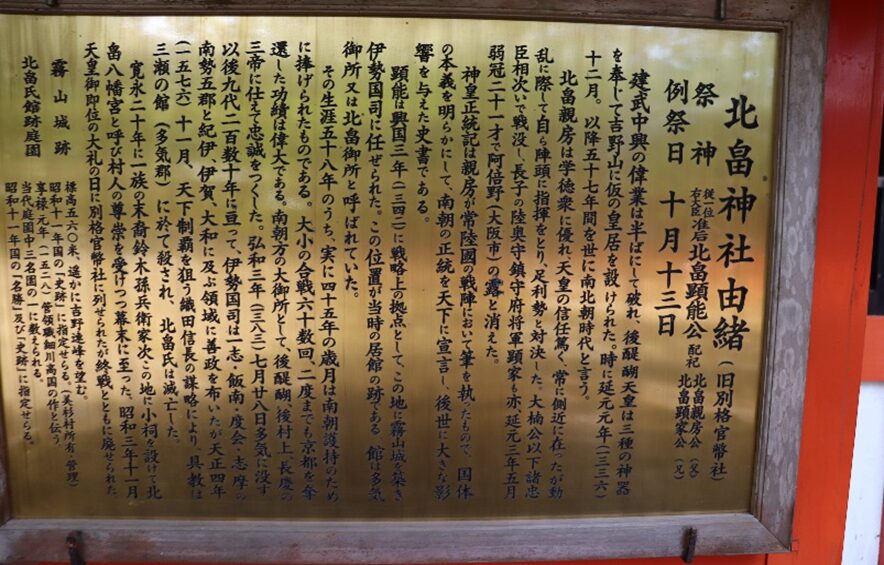 北畠神社由緒（旧別格官幣社）
祭神 従一位右大臣准后北畠顕能公 配祀 北畠親房公（父） 北畠顕家公（兄）
例祭日 十月十三日
建武中興の偉業は半ばにして破れ、後醍醐天皇は三種の神器
を奉じて吉野山に仮の皇居を設けられた。時に延元元年（一三三六）
十二月。以降五十七年間を世に南北朝時代と言う。
北畠親房は学徳衆に優れ天皇の信任篤く、常に側近に在ったが動
乱に際して自ら陣頭に指揮をとり、足利勢と対決した。大楠公以下諸忠
臣相次いで戦没し、長子の陸奥守鎮守府将軍顕家も亦延元三年五月
弱冠二十一才で阿倍野（大阪市）の露と消えた。
神皇正統記は親房が常陸國の戦陣において筆を執ったもので、国体
の本義を明らかにして、南朝の正統を天下に宣言し、後世に大きな影
響を与えた史書である。
顕能は興国三年（一三四二）に戦略上の拠点として、この地に霧山城を築き
伊勢国司に任ぜられた。この位置が当時の居館の跡である 館は多気
御所又は北畠御所と呼ばれていた。
その生涯五十八年のうち、実に四十五年の歳月は南朝護持のため
に捧げられたものである。大小の合戦六十数回、二度までも京都を奪
還した功績は偉大である。南朝方の大御所として、後醍醐、後村上、長慶の
三帝に仕えて忠誠をつくした。弘和三年（一三八三）七月廿八日多気に没す
以後九代二百数十年に亘って、伊勢国司は一志・飯南・度会・志摩の
南勢五郡と紀伊、伊賀、大和に及ぶ領域に善政を布いたが天正四年
（一五七六）十一月、天下制覇を狙う織田信長の謀略により、具教は
三瀬の館（多気郡）に於て殺され、北畠氏は滅亡した。
寛永二十年に一族の末裔鈴木孫兵衛家次この地に小祠を設けて北
畠八幡宮と呼び村人の尊崇を受けつつ幕末に至った。昭和三年十一月
天皇御即位の大礼の日に別格官幣社に列せられたが終戦とともに廃せられた。
霧山城跡 標高五六〇米、遥かに吉野連峰を望む。
昭和十一年国の「史跡」に指定せらる。（美杉村所有・管理）
北畠氏館跡庭園 享禄元年（一五二八）管領職細川高国の作と伝う。
当代庭園中三名園の一に数えられる。
昭和十一年国の「名勝」及び「史跡」に指定せらる。